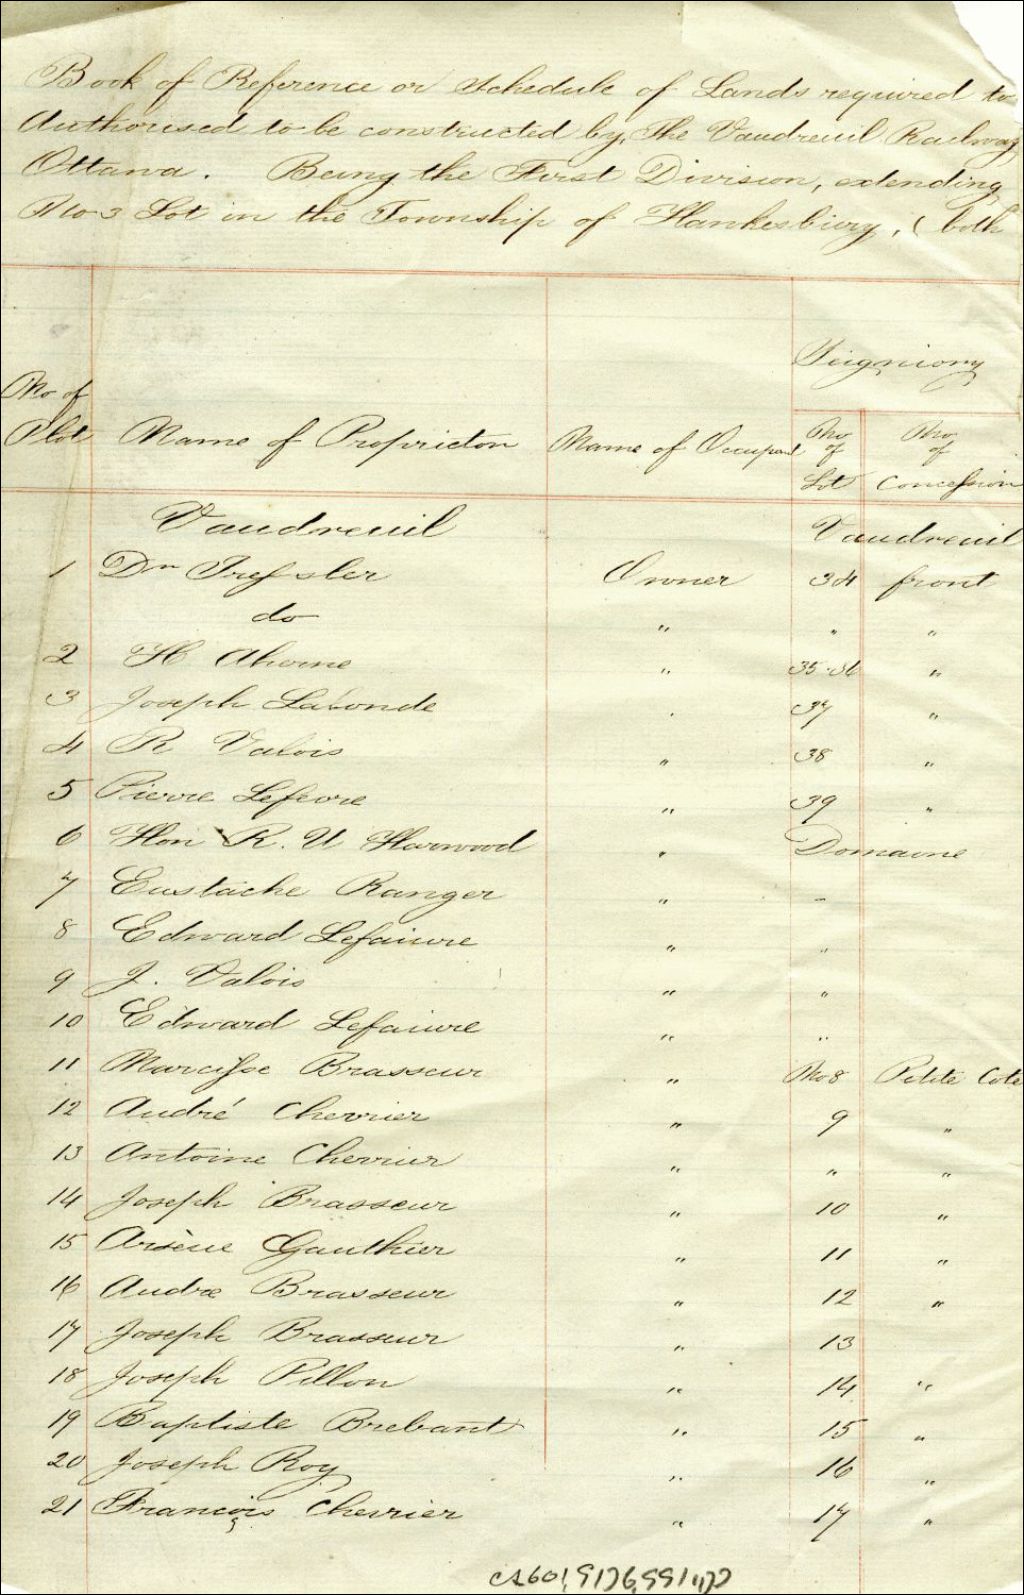 Book of Reference or Schedule of Lands required to
Authorised to be constructed by, The Vaudreuil Railway
Ottawa. Being the First Division, extending
No 3 Lot in the Township of Hawkesbury, ( both
Seigniory
No of
Plot Name of Proprietor Name of Occupant No of Lot No of Concession
Vaudreuil Vaudreuil
1 Dr Tressler Owner 34 front
do " " "
2 H Ahorne " 35-36 "
3 Joseph Lalonde " 37 "
4 R Valois " 38 "
5 Pierre Lefevre " 39 "
6 Hon R. U Harwood " Domaine
7 Eustache Ranger " "
8 Edward Lefaivre " "
9 J. Valois " "
10 Edward Lefaivre " "
11 Narcisse Brasseur " No 8 Petite Cote
12 André Chevrier " 9 "
13 Antoine Chevrier " " "
14 Joseph Brasseur " 10 "
15 Arsène Gauthier " 11 "
16 Andre Brasseur " 12 "
17 Joseph Brasseur " 13
18 Joseph Pillon " 14 "
19 Baptiste Brebant " 15 "
20 Joseph Roy " 16 "
21 François Chevrier " 17 "